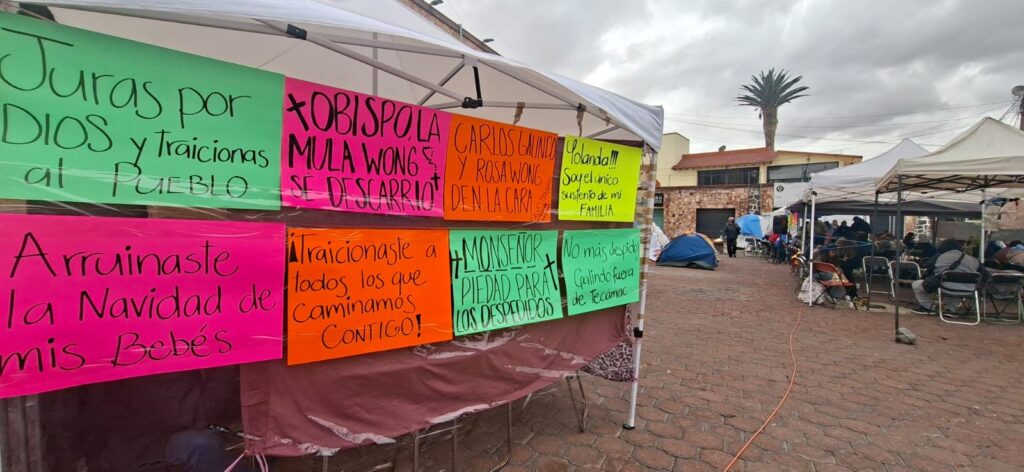 Juras por
DIOS y Traicionas
al PUEBLO
OBISPO LA
MULA WONG
SE DESCARRIO
CARLOS GALINDO
Y ROSA WONG
DEN LA CARA
Yolanda!!!
Soy el único
sustento de mi
FAMILIA
Arruinaste
la Navidad de
mis Bebés
¡Traicionaste a
todos los que
caminamos
CONTIGO!
MONSEÑOR
PIEDAD PARA
LOS DESPEDIDOS
No más despido
Galindo fuera
de Tecámac